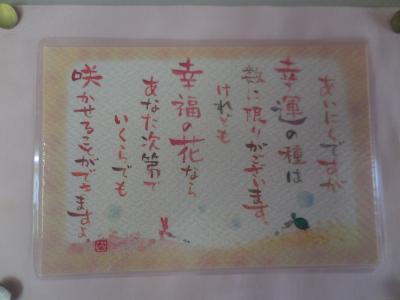 あいにくですが
幸運の種は
数に限りがございます。
けれども
幸福の花なら
あなた次第で
いくらでも
咲かせることができますよ。